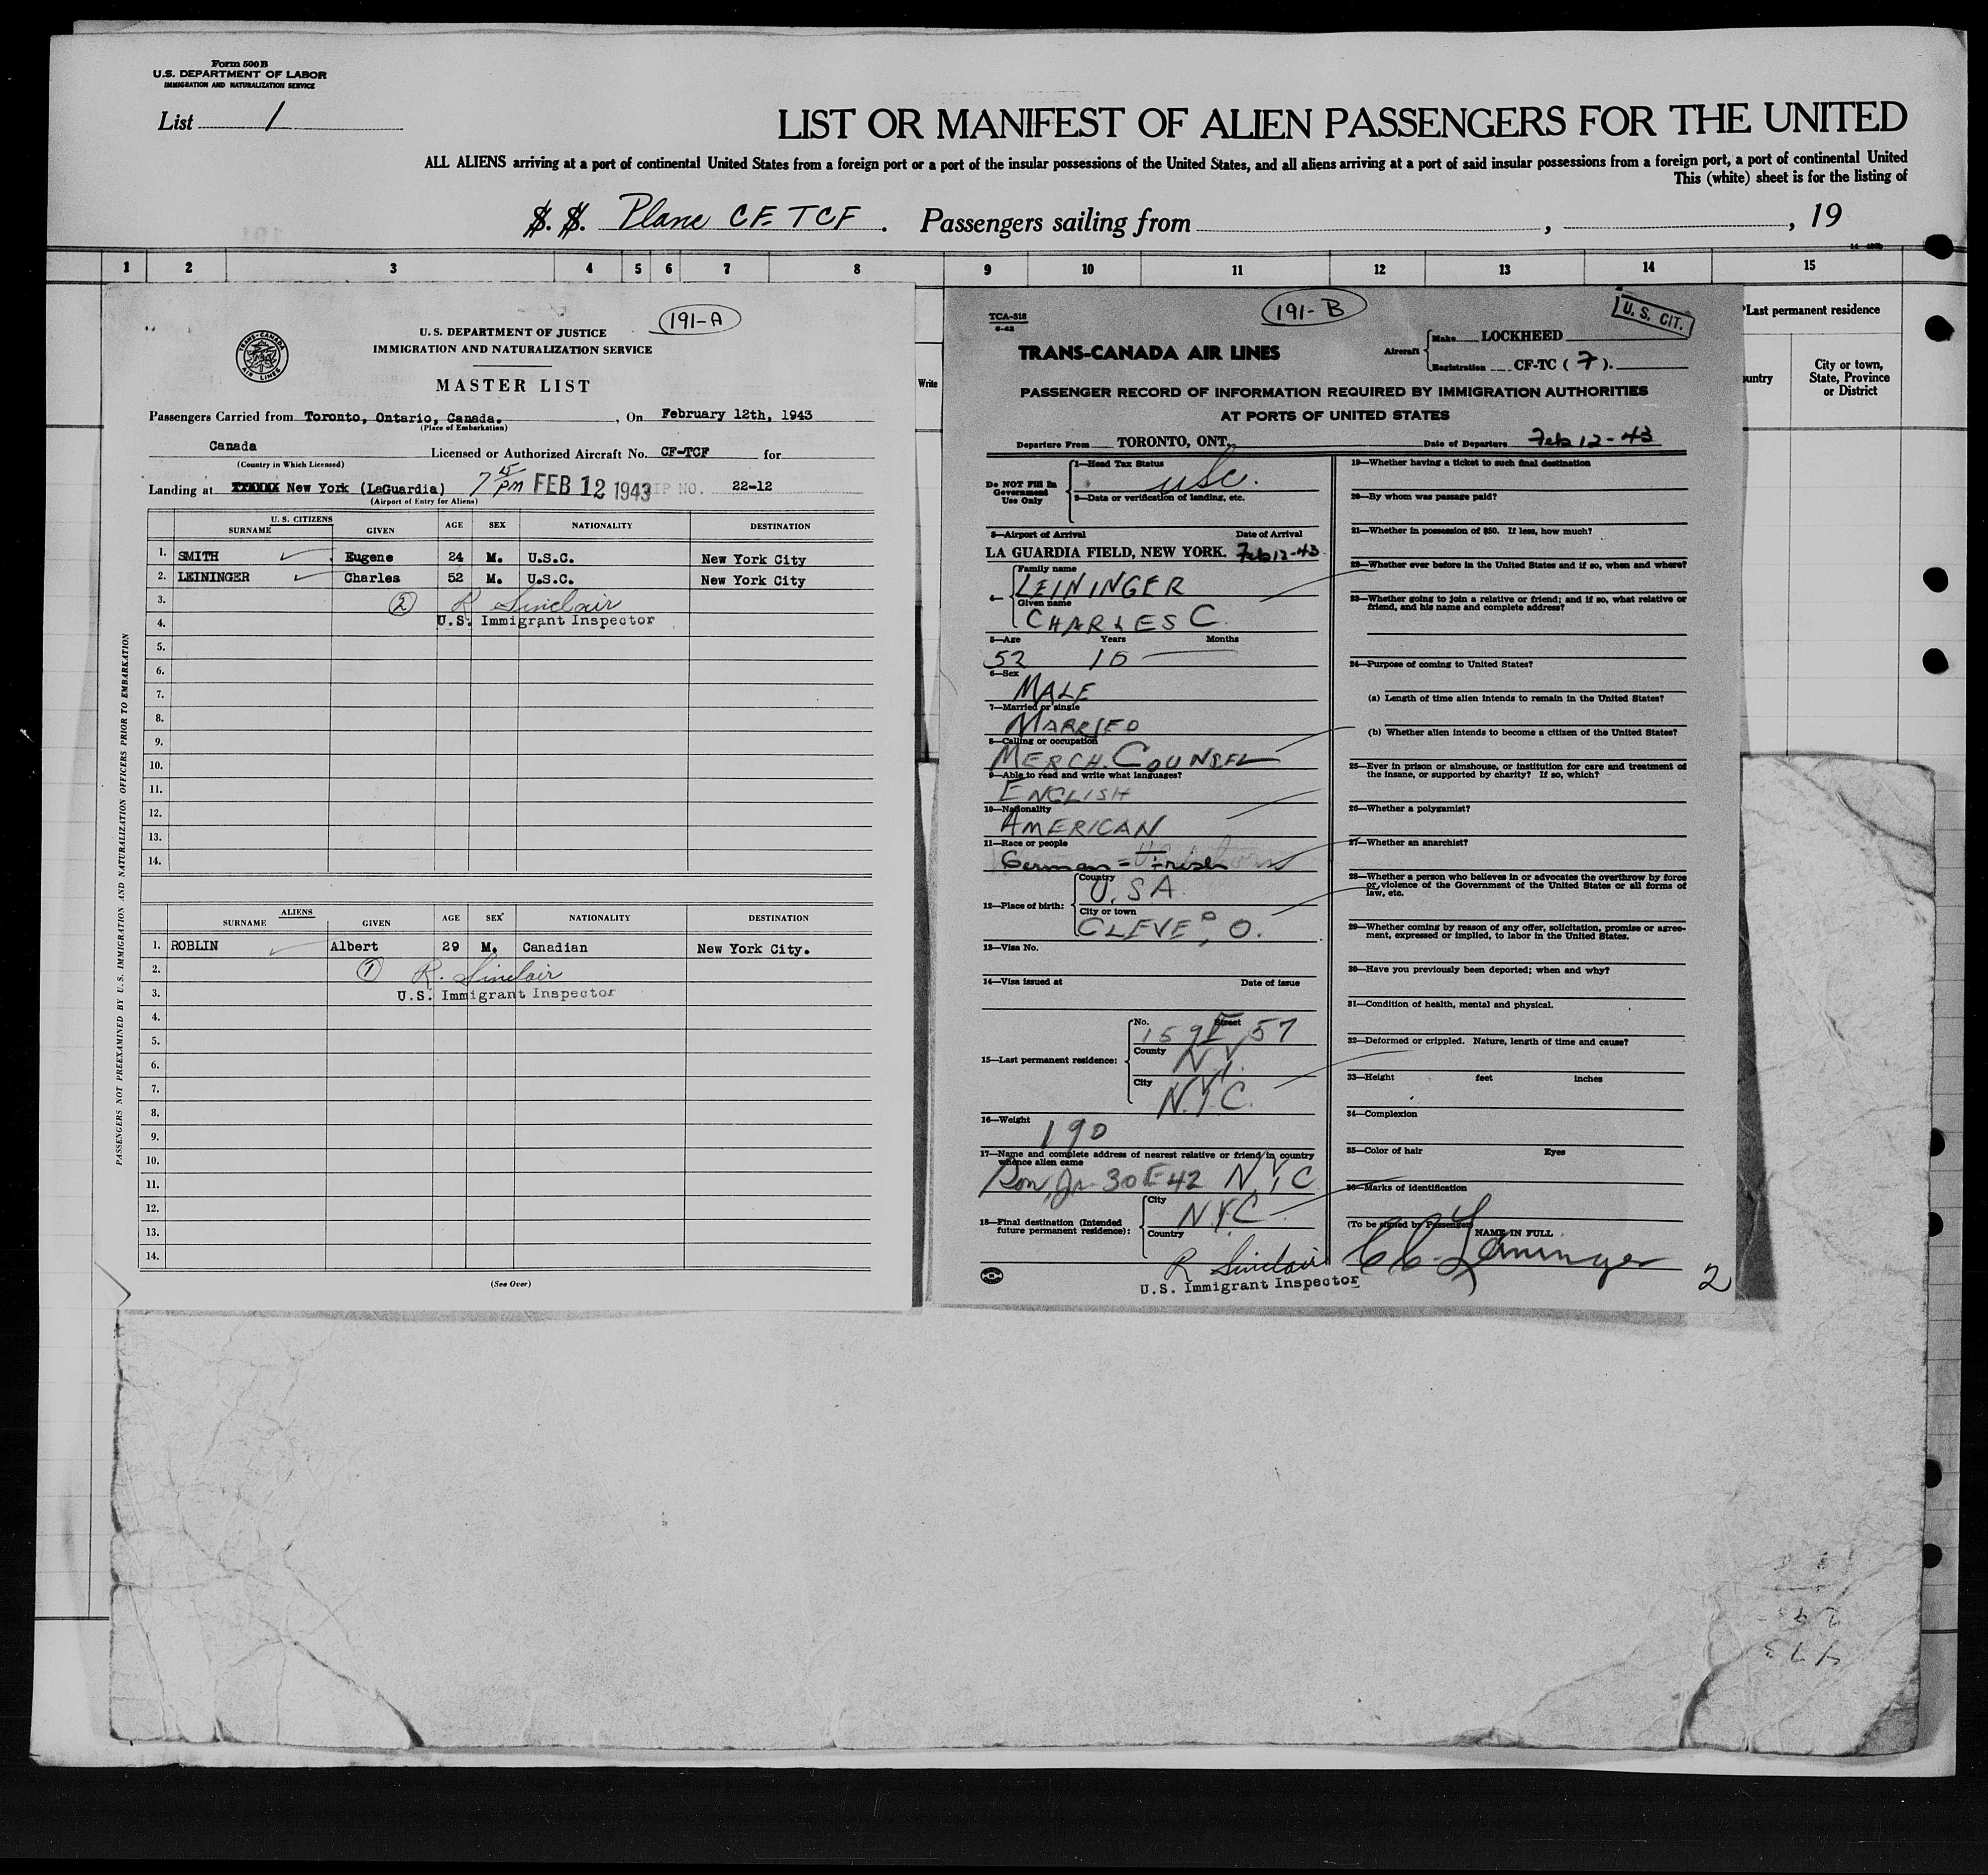 Form 500B
U.S. DEPARTMENT OF LABOR
IMMIGRATION AND NATURALIZATION SERVICE
List 1
LIST OR MANIFEST OF ALIEN PASSENGERS FOR THE UNITED
ALL ALIENS arriving at a port of continental United States from a foreign port or a port of the insular possessions of the United States, and all aliens arriving at a port of said insular possessions from a foreign port, a port of continental United
This (white) sheet is for the listing of
S. S. Plane CF-TCF. Passengers sailing from , , 19
1 2 3 4 5 6 7 8 9 10 11 12 13 14 15
191-A
TRANS-CANADA AIR LINES
U. S. DEPARTMENT OF JUSTICE
IMMIGRATION AND NATURALIZATION SERVICE
MASTER LIST
Passengers Carried from Toronto, Ontario, Canada. , On February 12th, 1943
(Place of Embarkation)
Canada Licensed or Authorized Aircraft No. CF-TCF for
(Country in Which Licensed)
Landing at XXXXXX New York (LaGuardia) 7 45 PM FEB 12 1943 IP NO. 22-12
(Airport of Entry for Aliens)
U. S. CITIZENS
SURNAME GIVEN AGE SEX NATIONALITY DESTINATION
1. SMITH Eugene 24 M. U.S.C. New York City
2. LEININGER Charles 52 M. U.S.C. New York City
3. 2 R Sinclair
4. U.S. Immigrant Inspector
5.
6.
7.
8.
9.
10.
11.
12.
13.
14.
ALIENS
SURNAME GIVEN AGE SEX NATIONALITY DESTINATION
1. ROBLIN Albert 29 M. Canadian New York City.
2. 1 R. Sinclair
3. U.S. Immigrant Inspector
4.
5.
6.
7.
8.
9.
10.
11.
12.
13.
14.
(See Over)
PASSENGERS NOT PREEXAMINED BY U.S. IMMIGRATION AND NATURALIZATION OFFICERS PRIOR TO EMBARKATION
Write
191-B
U. S. CIT.
TCA-518
6-42
TRANS-CANADA AIR LINES
Aircraft Make LOCKHEED
Registration CF-TC ( 7 ).
PASSENGER RECORD OF INFORMATION REQUIRED BY IMMIGRATION AUTHORITIES
AT PORTS OF UNITED STATES
Departure From TORONTO, ONT. Date of Departure Feb 12-43
Do NOT Fill In
Government
Use Only
1—Head Tax Status
USC.
2—Data or verification of landing, etc.
3—Airport of Arrival Date of Arrival
LA GUARDIA FIELD, NEW YORK. Feb 12-43
4— Family name
LEININGER
Given name
CHARLES C.
5—Age Years Months
52 10
6—Sex
MALE
7—Married or single
MARRIED
8—Calling or occupation
MERCH. COUNSEL
9—Able to read and write what languages?
ENGLISH
10—Nationality
AMERICAN
11—Race or people
German = Irish
12—Place of birth: Country
U.S.A.
City or town
CLEVE D, O.
13—Visa No.
14—Visa issued at Date of issue
15—Last permanent residence: No. Street
159 E 57
County
N.Y.
City
N.Y.C.
16—Weight
190
17—Name and complete address of nearest relative or friend in country
whence alien came
Son, Jr. 30 E 42 N.Y.C
18—Final destination (Intended
future permanent residence):
City
N.Y.C
Country
R Sinclair
U.S. Immigrant Inspector
19—Whether having a ticket to such final destination
20—By whom was passage paid?
21—Whether in possession of $50. If less, how much?
22—Whether ever before in the United States and if so, when and where?
23—Whether going to join a relative or friend; and if so, what relative or
friend, and his name and complete address?
24—Purpose of coming to United States?
(a) Length of time alien intends to remain in the United States?
(b) Whether alien intends to become a citizen of the United States?
25—Ever in prison or almshouse, or institution for care and treatment of
the insane, or supported by charity? If so, which?
26—Whether a polygamist?
27—Whether an anarchist?
28—Whether a person who believes in or advocates the overthrow by force
or violence of the Government of the United States or all forms of
law, etc.
29—Whether coming by reason of any offer, solicitation, promise or agree-
ment, expressed or implied, to labor in the United States.
30—Have you previously been deported; when and why?
31—Condition of health, mental and physical.
32—Deformed or crippled. Nature, length of time and cause?
33—Height feet inches
34—Complexion
35—Color of hair Eyes
36—Marks of identification
(To be signed by Passenger) NAME IN FULL
C C Leininger
2
*Last permanent residence
City or town,
State, Province
or District